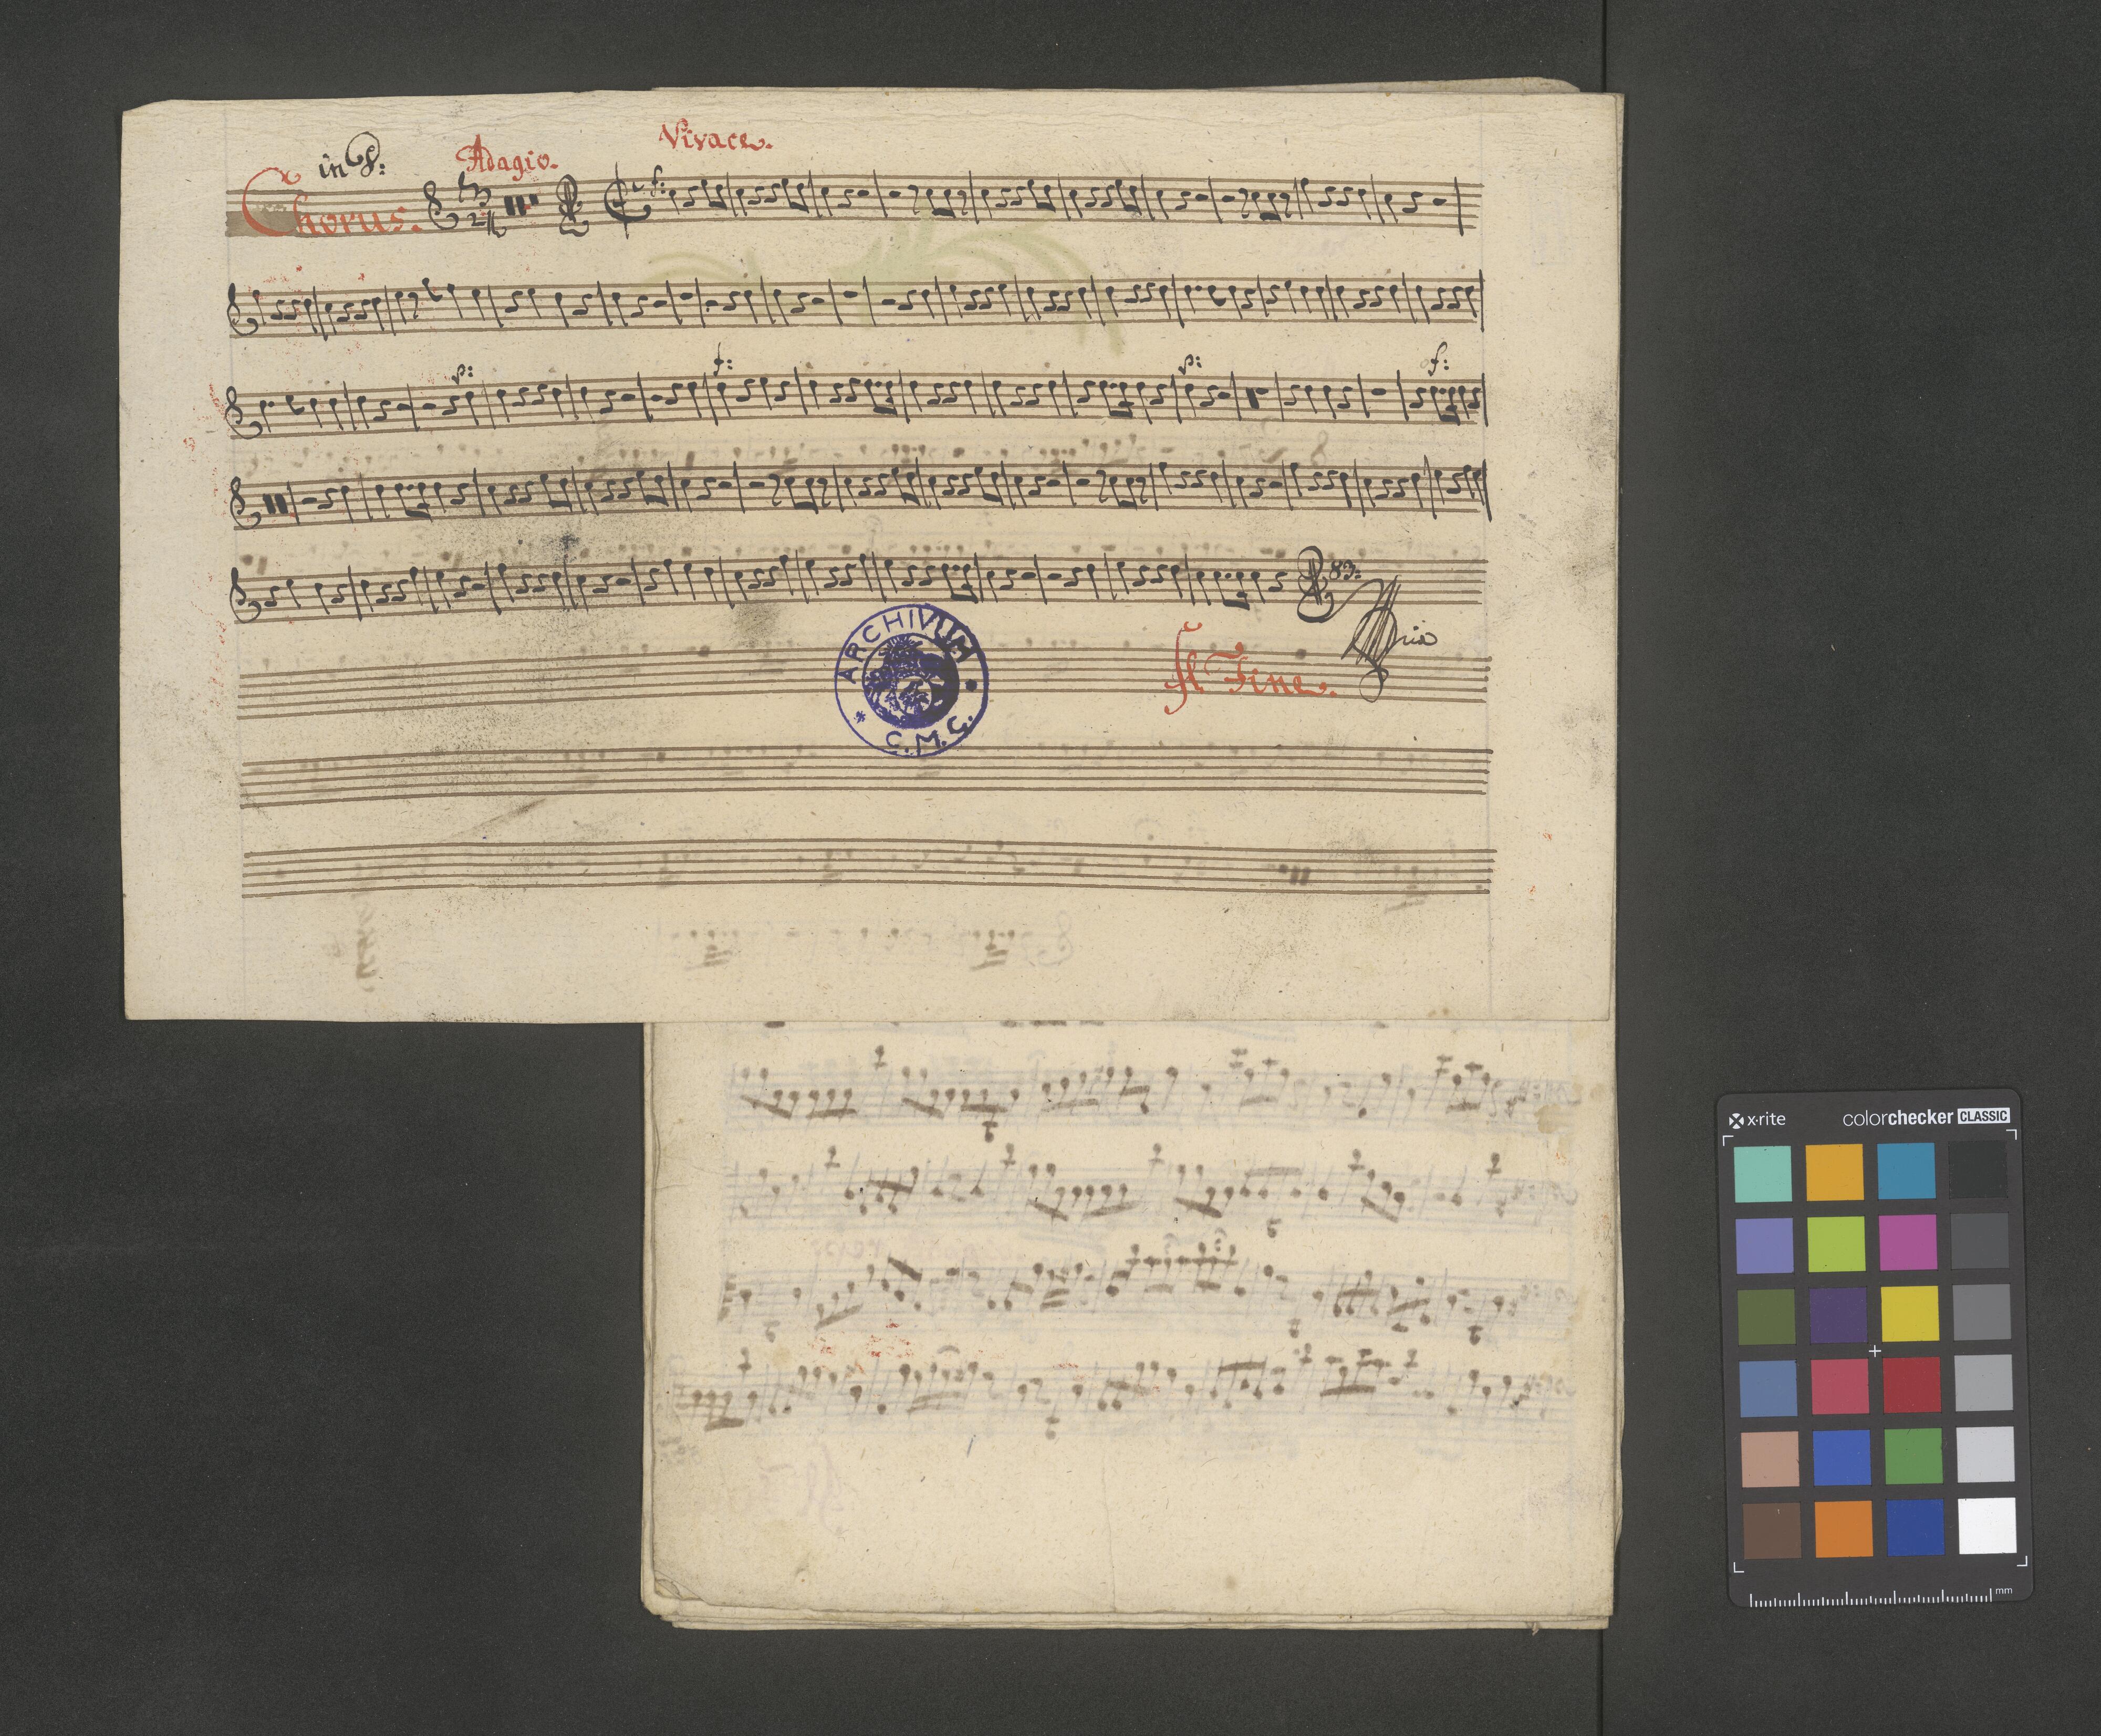 Vivace.
in
Adagio.
Chorus.
f:
p:
f:
p:
f:
83:
Il Fine.
ARCHIVUM
* C.M.C. •
x·rite
colorchecker CLASSIC
mm